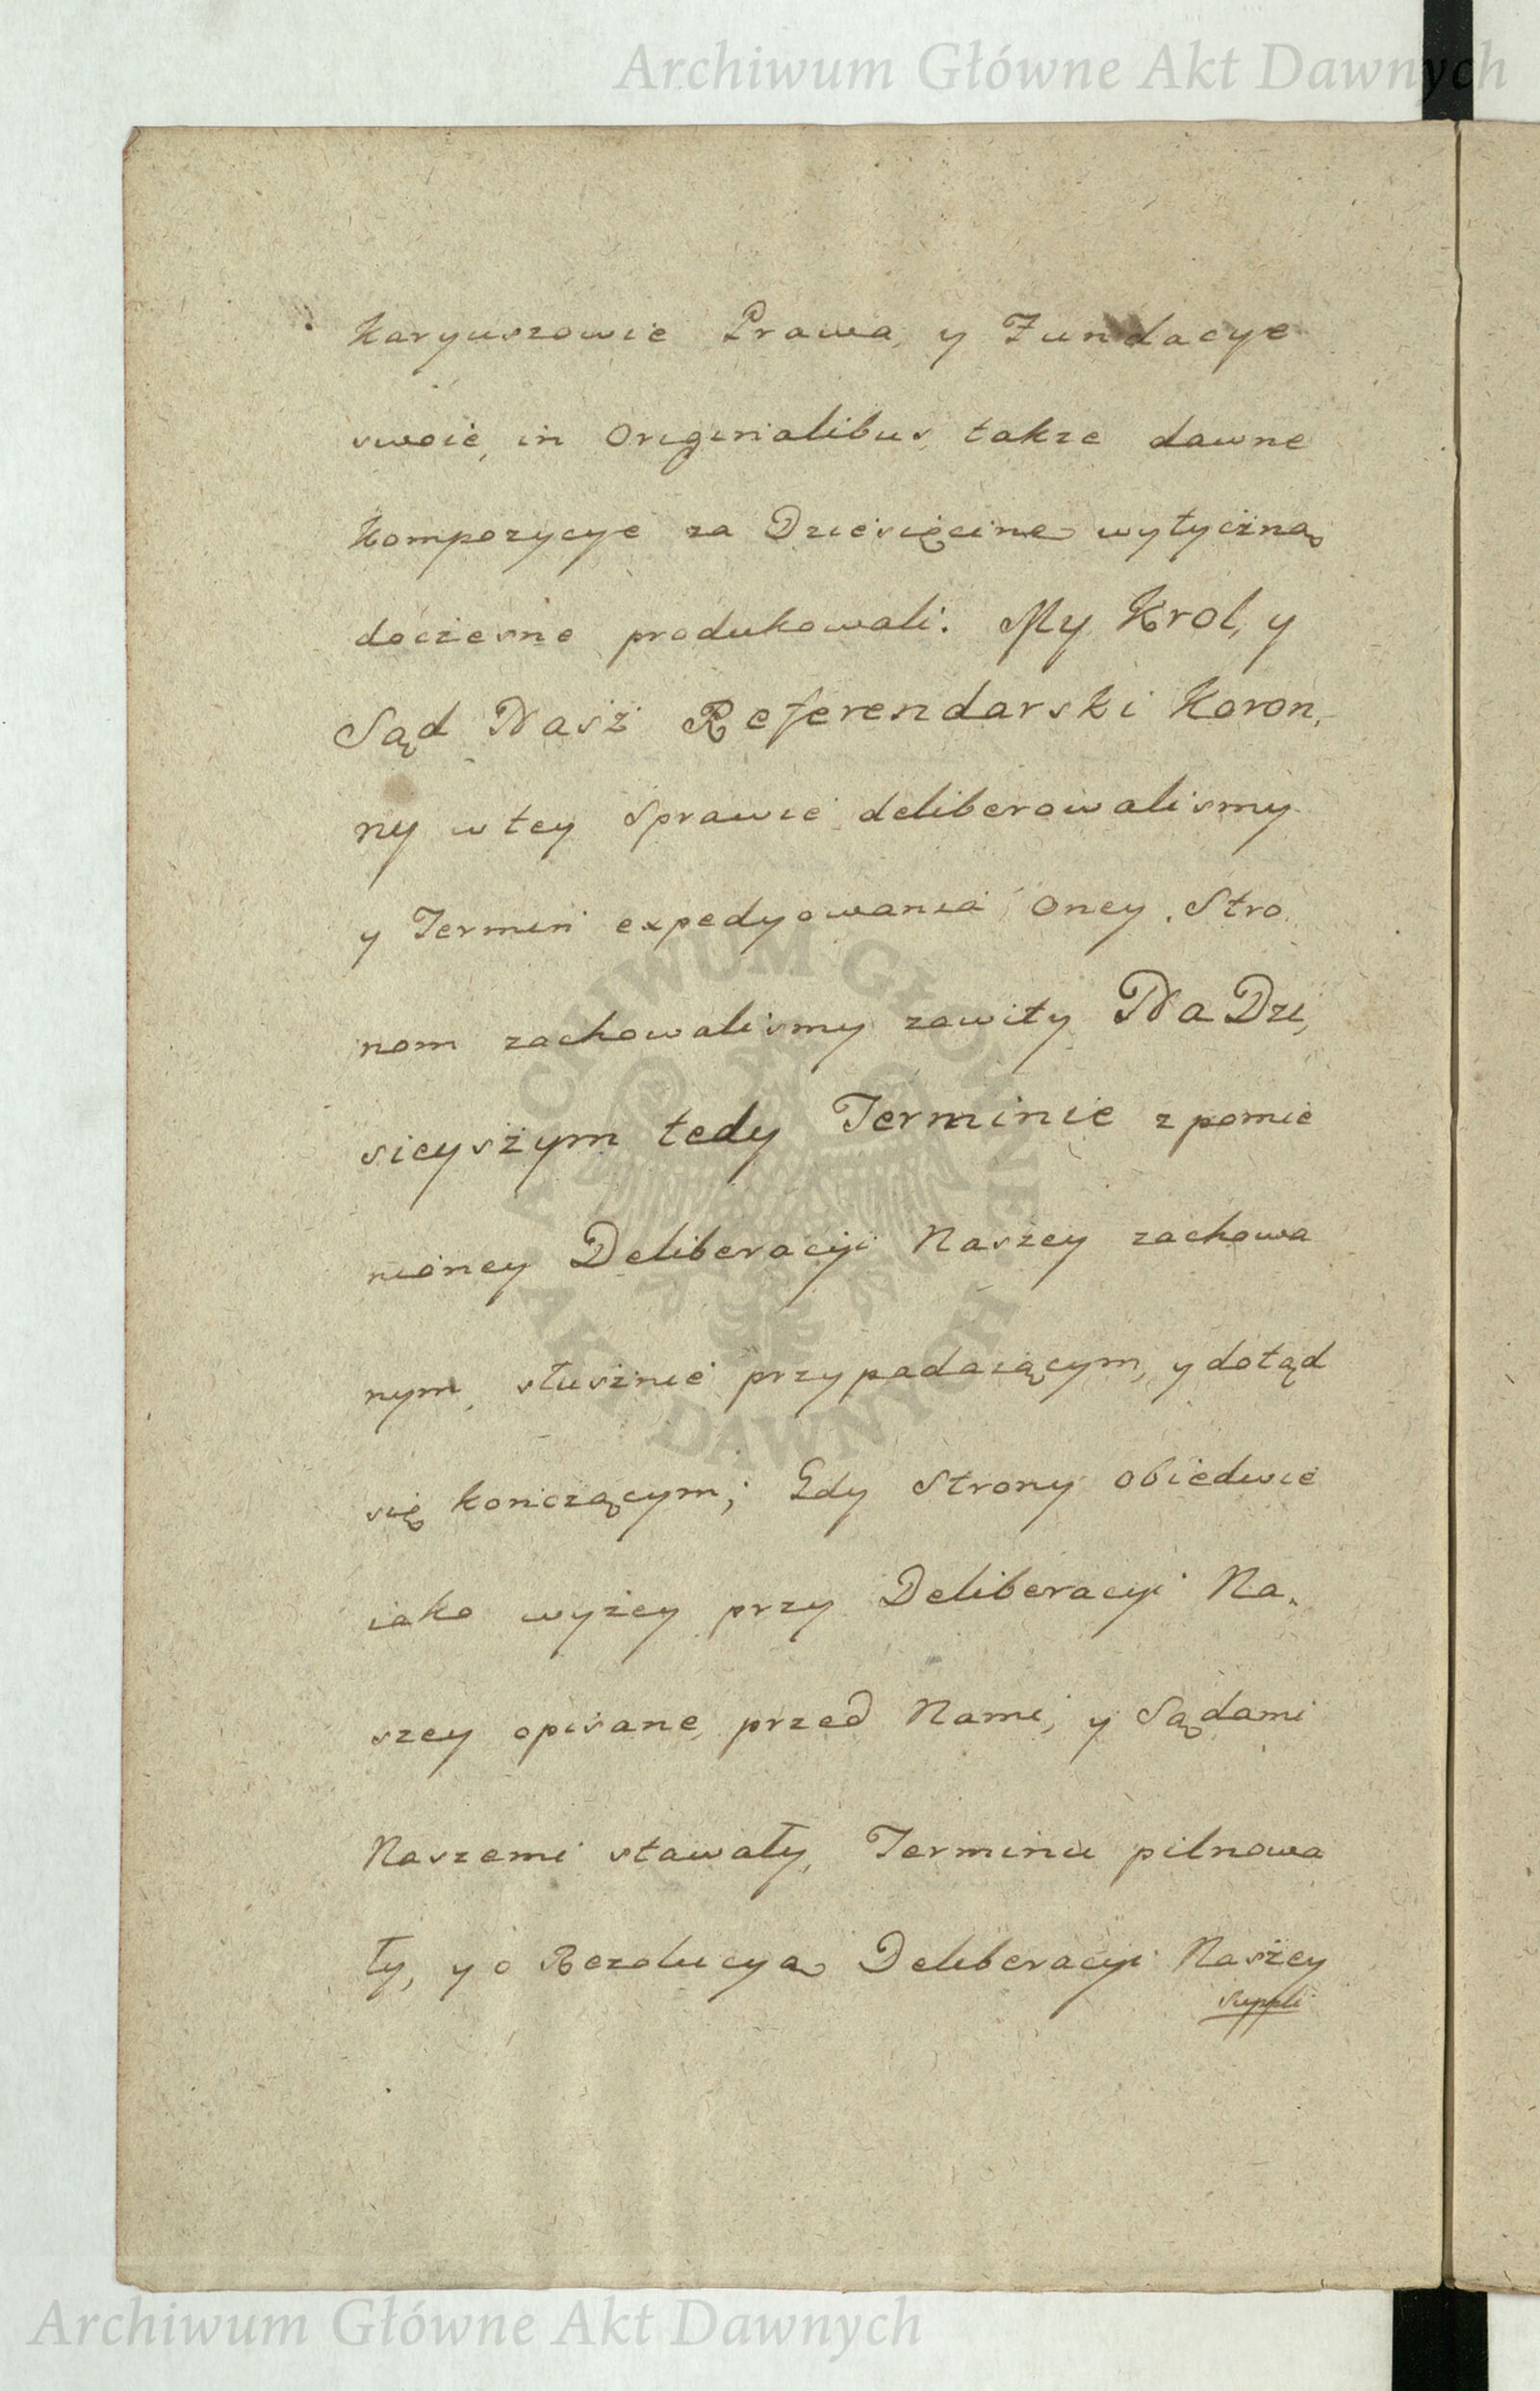 Archiwum Główne Akt Dawnych
Karyuszowie Prawa, y Fundacye
swoie, in Originalibus, takze dawne
Kompozycye za Dziesięcine wytyczną
doczesne produkowali. My Krol, y
Sąd Nasz Referendarski Koron,
ny w tey Sprawie deliberowalismy
y Termin expedyowania Oney, Stro
nom zachowalismy zawity, Na Dzi,
sieyszym tedy Terminie z pomie
nioney Deliberacyi Naszey zachowa
nym, słusznie przypadaiącym, y dotąd
się konczącym; Gdy Strony obiedwie
iako wyzey przy Deliberacyi Na,
szey opisane, przed Nami, y Sądami
Naszemi stawały, Terminu pilnowa
ły, y o Rezolucyą Deliberacyi Naszey
suppli
ARCHIWUM GŁÓWNE AKT DAWNYCH
Archiwum Główne Akt Dawnych